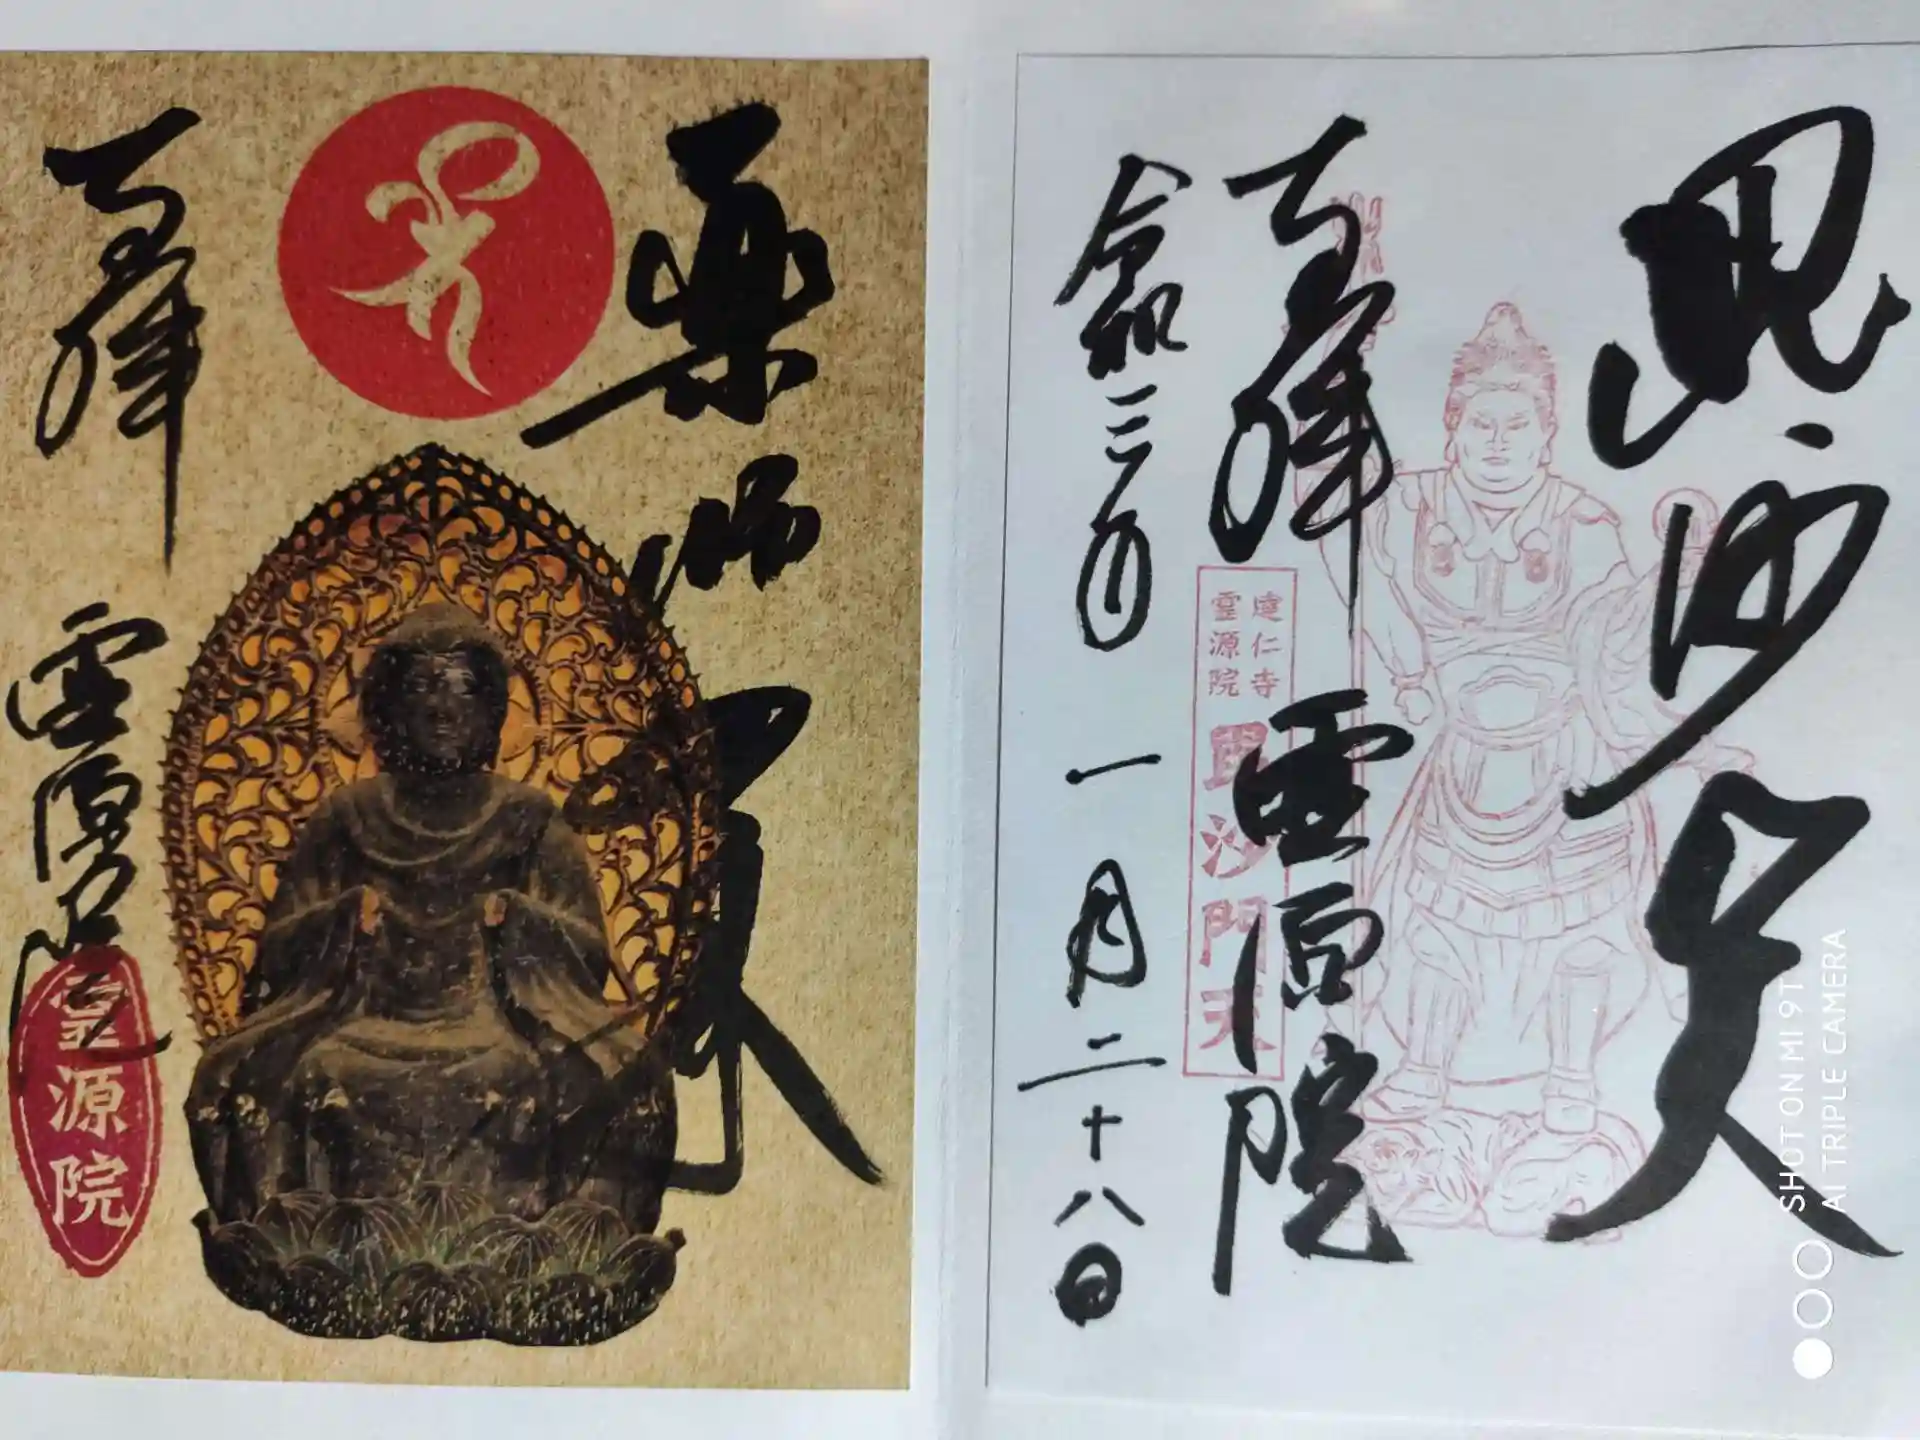 薬師如来
奉拝
霊源院
霊源院
毘沙天
奉拝
霊源院
建仁寺
霊源院
毘沙門天
令和三年
一月二十八日
SHOT ON MI 9T
AI TRIPLE CAMERA